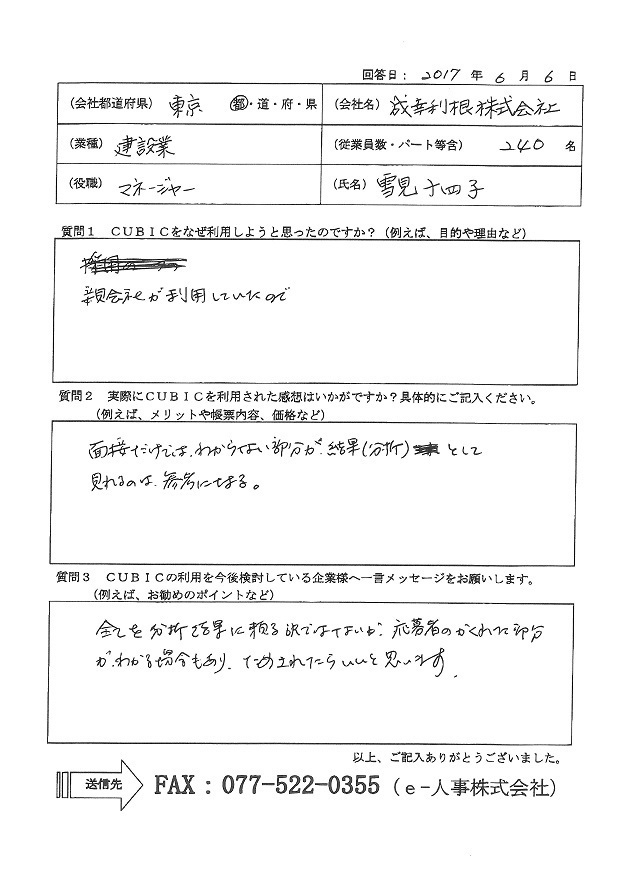 回答日： 2017 年 6 月 6 日
（会社都道府県） 東京 都・道・府・県 （会社名） 成幸利根株式会社
（業種） 建設業 （従業員数・パート等含） 240 名
（役職） マネージャー （氏名） 雪見十四子
質問１　ＣＵＢＩＣをなぜ利用しようと思ったのですか？（例えば、目的や理由など）
親会社が利用していたので
質問２　実際にＣＵＢＩＣを利用された感想はいかがですか？具体的にご記入ください。
（例えば、メリットや帳票内容、価格など）
面接だけでは、わからない部分が、結果（分析）として
見れるのは、参考になる。
質問３　ＣＵＢＩＣの利用を今後検討している企業様へ一言メッセージをお願いします。
（例えば、お勧めのポイントなど）
全てを分析結果に頼る訳ではないが、応募者のかくれた部分
が、わかる場合もあり、ためされたらいいと思います。
以上、ご記入ありがとうございました。
送信先 FAX：077-522-0355（ｅ－人事株式会社）